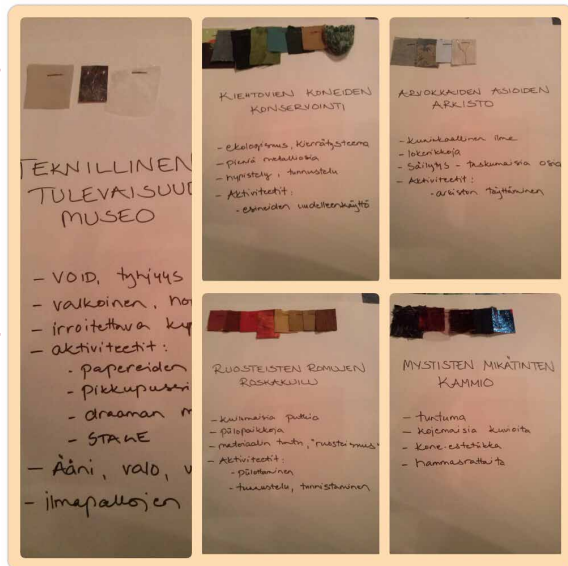 TEKNILLINEN
TULEVAISUUD
MUSEO
- VOID, tyhjyys
- valkoinen, ho
- irroitettava ky
- aktiviteetit:
- papereiden
- pikkupuseri
- draaman m
- STAGE
- Ääni, valo, v
- ilmapallojen
KIEHTOVIEN KONEIDEN
KONSERVOINTI
- ekologismus, kierrätysteema
- pieniä metalliosia
- hypistely, tunnustelu
- Aktiviteetit:
- esineiden uudelleenkäyttö
ARVOKKAIDEN ASIOIDEN
ARKISTO
- ilme
- lokerikkoja
- Säilytys - taskumaisia osia
- Aktiviteetit:
- arkiston täyttäminen
RUOSTEISTEN ROMUJEN
ROSKAKUILU
- putkia
- piilopaikkoja
- materiaalin tuntu, "ruosteismus"
- Aktiviteetit:
- piilottaminen
- tunnustelu, tunnistaminen
MYSTISTEN MIKÄTINTEN
KAMMIO
- tuntuma
- kuvioita
- kone-estetiikka
- hammasrattaita